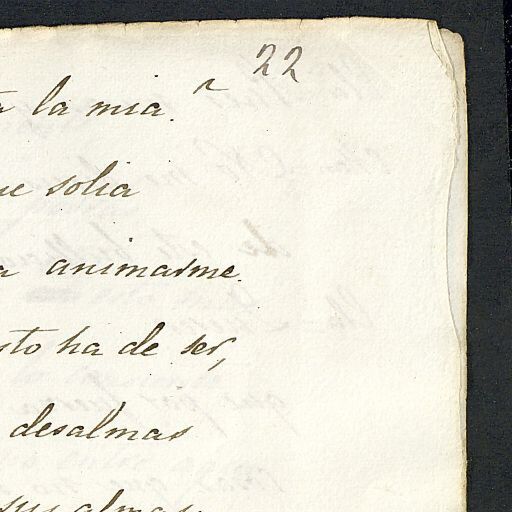 22
la mia.
solia
animarme.
ha de ser,
desalmas
sus almas